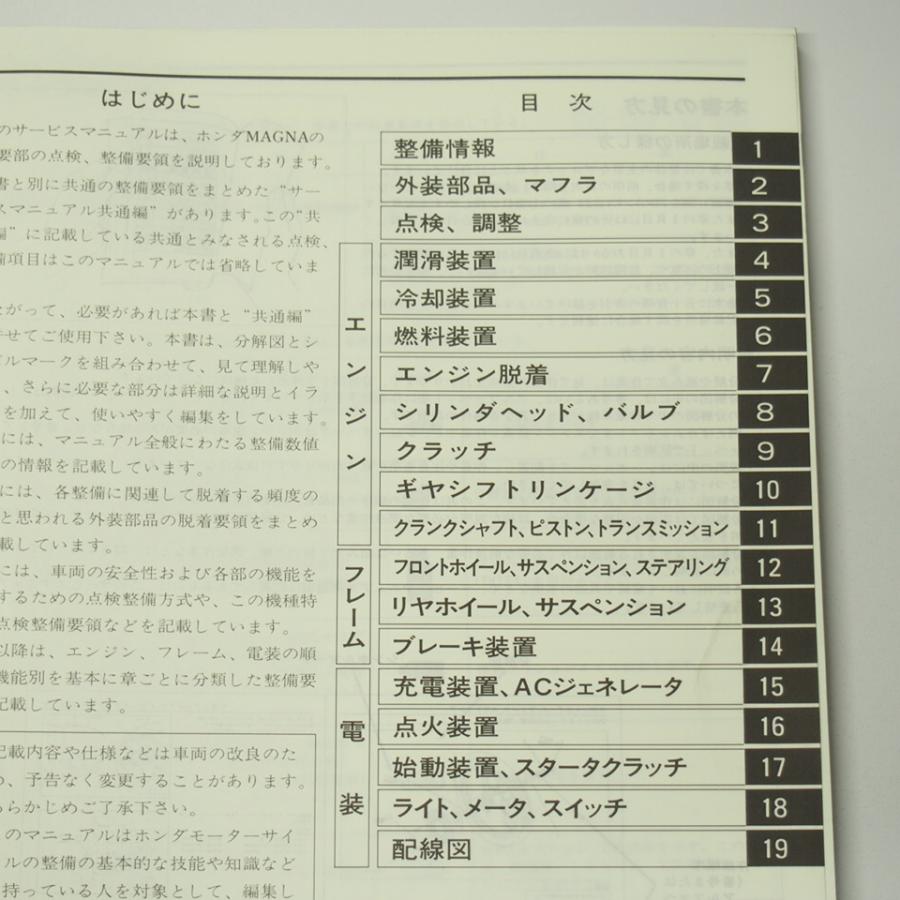 はじめに
のサービスマニュアルは、ホンダMAGNAの
要部の点検、整備要領を説明しております。
書と別に共通の整備要領をまとめた“サー
スマニュアル共通編”があります。この“共
編”に記載している共通とみなされる点検、
備項目はこのマニュアルでは省略していま
ながって、必要があれば本書と“共通編”
併せてご使用下さい。本書は、分解図とシ
ルマークを組み合わせて、見て理解しや
、さらに必要な部分は詳細な説明とイラ
を加えて、使いやすく編集をしています。
には、マニュアル全般にわたる整備数値
の情報を記載しています。
には、各整備に関連して脱着する頻度の
と思われる外装部品の脱着要領をまとめ
載しています。
には、車両の安全性および各部の機能を
するための点検整備方式や、この機種特
点検整備要領などを記載しています。
以降は、エンジン、フレーム、電装の順
機能別を基本に章ごとに分類した整備要
記載しています。
記載内容や仕様などは車両の改良のた
め、予告なく変更することがあります。
あらかじめご了承下さい。
のマニュアルはホンダモーターサイ
ルの整備の基本的な技能や知識など
持っている人を対象として、編集し
目 次
整備情報 1
外装部品、マフラ 2
点検、調整 3
エンジン
潤滑装置 4
冷却装置 5
燃料装置 6
エンジン脱着 7
シリンダヘッド、バルブ 8
クラッチ 9
ギヤシフトリンケージ 10
クランクシャフト、ピストン、トランスミッション 11
フレーム
フロントホイール、サスペンション、ステアリング 12
リヤホイール、サスペンション 13
ブレーキ装置 14
電装
充電装置、ACジェネレータ 15
点火装置 16
始動装置、スタータクラッチ 17
ライト、メータ、スイッチ 18
配線図 19